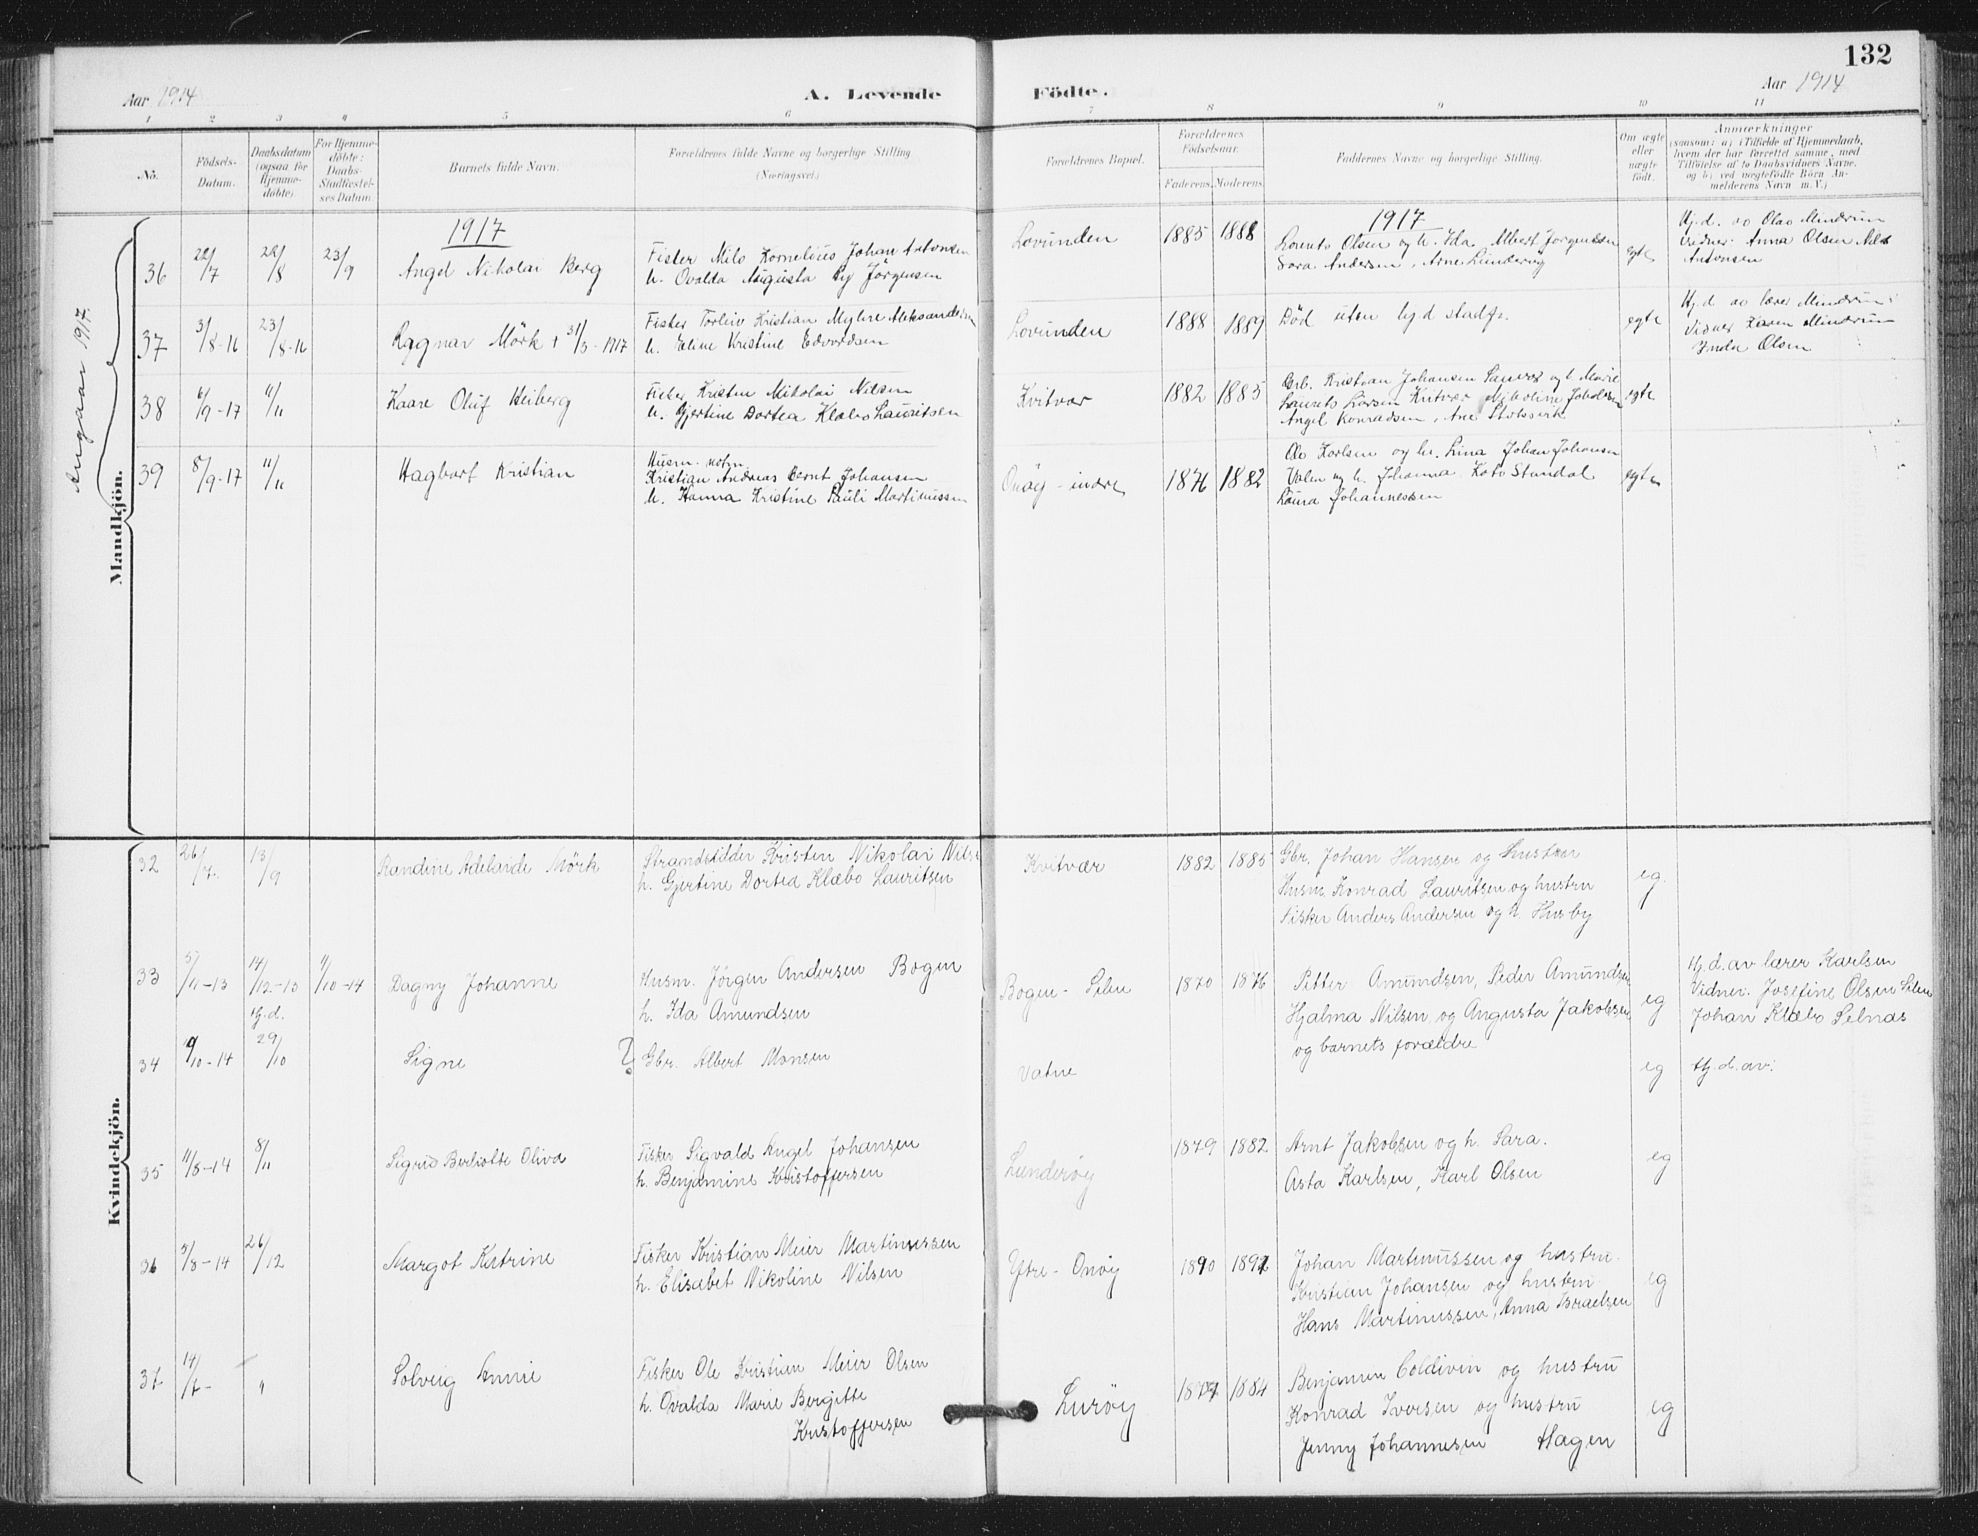 132
Aar 1914 A. Levende Födte. Aar 1914
1 2 3 4 5 6 7 8 9 10 11
No.
Födsels-
Datum.
Daabsdatum
(ogsaa for
Hjemme-
döbte)
For Hjemme-
döbte:
Daabs-
Stadfæstel-
ses Datum.
Barnets fulde Navn.
Forældrenes fulde Navne og borgerlige Stilling
(Næringsvei.)
Forældrenes Bopæl.
Forældrenes
Födselsaar.
Faderens. Moderens.
Faddernes Navne og borgerlige Stilling.
Om ægte
eller
uægte
födt.
Anmærkninger
(saasom: a) Tilfælde af Hjemmedaab,
hvem der har forrettet samme, med
Tilföielse af to Daabsvidners Navne.
og b) ved uægtefödte Börn An-
melderens Navn m. V.)
Angaar 1917.
Mandkjön.
1917
1917
36 22/7 22/8 23/9 Angel Nikolai Berg
Fisker Nils Kornelius Johan Antonsen
h. Ovalda Augusta By Jörgensen
Lovunden 1885 1888
Lorents Olsen og h. Ida. Albert Jorgensen
Sara Andersen, Arne Lunderöy
egte
Hj.d. av Olav Mindrum
Vidner: Anna Olsen Nils
Antonsen
37 3/8-16 23/8-16 Ragnar Mörk + 31/3-1917
Fisker Torleiv Kristian Myhre Aleksandersen
h. Eline Kristine Edvardsen
Lovunden 1888 1889
Död uten hj d stadf.
egte
Hj.d. av lærer Mindrum:
Vidner Karen Mindrum
Inda Olsen
38 6/9-17 11/11 Kaare Oluf Heiberg
Fisker Kristen Nikolai Nilsen
h. Gjertine Dortea Klæbo Lauritsen
Kvitvær 1882 1885
Grb. Kristian Johansen Sauvær og h Marie
Laurits Larsen Kvitvær Nikoline Jakobsen
Angel Konradsen, Ane Stolsvik
egte
39 8/9-17 11/11 Hagbart Kristian
Husm. notm.
Kristian Andreas Bernt Johansen
h. Hanna Kristine Pauli Martinussen
Onöy - indre 1876 1882
Ole Karlsen og h. Lina Johan Johansen
Valen og h. Johanna Kato Stundal
Laura Johannessen
egte
Kvindekjön.
32 26/7. 13/9 Randine Adelaide Mörk
Strandsidder Kristen Nikolai Nilse
h. Gjertine Dortea Klæbo Lauritsen
Kvitvær 1882 1885
Gbr. Johan Hansen og hustru
Husm. Konrad Lauritsen og hustru
Fisker Anders Andersen og h. Husby
eg.
33 5/11-13 14/12-13 11/10-14 Dagny Johanne
Hj.d.
Husm. Jörgen Andersen Bogen
h. Ida Amundsen
Bogen - Selen 1870 1876
Petter Amundsen, Peder Amundsen
Hjalma Nilsen og Augusta Jakobsen
og barnets forældre
eg
Hj.d. av lærer Karlsen
Vidner. Josefine Olsen Selen
Johan Klæbo Selnæs
34 9/10-14 29/10 Signe ? Gbr. Albert Monsen
Vatne
eg Hj.d.av:
35 11/8-14 8/11 Sigrid Berliotte Oliva
Fisker Sigvald Angel Johansen
h. Benjamine Kristoffersen
Lunderöy 1879 1882
Arnt Jakobsen og h. Sara.
Asta Karlsen, Karl Olsen
eg
36 5/8-14 26/12 Margot Katrine
Fisker Kristian Meier Martinussen
h. Elisabet Nikoline Nilsen
Ytre - Onöy 1890 1892
Johan Martinussen og hustru.
Kristian Johansen og hustru.
Hans Martinussen, Anna Israelsen
eg
37 14/7- " Solveig Annie
Fisker Ole Kristian Meier Olsen
h. Ovalda Marie Bergitte
Kristoffersen
Luröy 1877 1884
Benjamin Coldivin og hustru
Konrad Iversen og hustru
Jenny Johannesen Hagen
eg